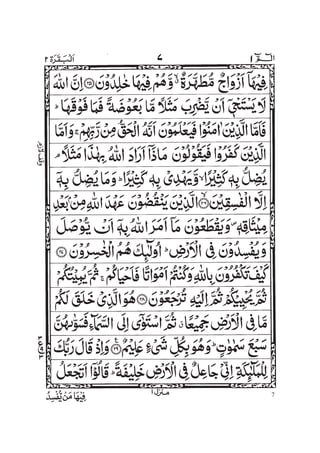 الٓمّٓ ١ ٧ اَلْبَقَرَة ٢
فِيْهَاۤ اَزْوَاجٌ مُّطَهَّرَةٌ ۙ وَّهُمْ فِيْهَا خٰلِدُوْنَ ﴿۲۵﴾ اِنَّ اللّٰهَ
لَا يَسْتَحْىٖۤ اَنْ يَّضْرِبَ مَثَلًا مَّا بَعُوْضَةً فَمَا فَوْقَهَا ؕ
فَاَمَّا الَّذِيْنَ اٰمَنُوْا فَيَعْلَمُوْنَ اَنَّهُ الْحَقُّ مِنْ رَّبِّهِمْ ۚ وَاَمَّا
الَّذِيْنَ كَفَرُوْا فَيَقُوْلُوْنَ مَاذَاۤ اَرَادَ اللّٰهُ بِهٰذَا مَثَلًا ۘ
يُضِلُّ بِهٖ كَثِيْرًا ۙ وَّيَهْدِىْ بِهٖ كَثِيْرًا ؕ وَمَا يُضِلُّ بِهٖۤ
اِلَّا الْفٰسِقِيْنَ ﴿۲۶﴾ الَّذِيْنَ يَنْقُضُوْنَ عَهْدَ اللّٰهِ مِنْۢ بَعْدِ
مِيْثَاقِهٖ ۪ وَيَقْطَعُوْنَ مَاۤ اَمَرَ اللّٰهُ بِهٖۤ اَنْ يُّوْصَلَ
وَيُفْسِدُوْنَ فِى الْاَرْضِ ؕ اُولٰٓئِكَ هُمُ الْخٰسِرُوْنَ ﴿۲۷﴾
كَيْفَ تَكْفُرُوْنَ بِاللّٰهِ وَكُنْتُمْ اَمْوَاتًا فَاَحْيَاكُمْ ۚ ثُمَّ يُمِيْتُكُمْ
ثُمَّ يُحْيِيْكُمْ ثُمَّ اِلَيْهِ تُرْجَعُوْنَ ﴿۲۸﴾ هُوَ الَّذِىْ خَلَقَ لَكُمْ
مَّا فِى الْاَرْضِ جَمِيْعًا ۗ ثُمَّ اسْتَوٰۤى اِلَى السَّمَآءِ فَسَوّٰٮهُنَّ
سَبْعَ سَمٰوٰتٍ ؕ وَهُوَ بِكُلِّ شَىْءٍ عَلِيْمٌ ﴿۲۹﴾ وَاِذْ قَالَ رَبُّكَ
لِلْمَلٰٓئِكَةِ اِنِّىْ جَاعِلٌ فِى الْاَرْضِ خَلِيْفَةً ؕ قَالُوْۤا اَتَجْعَلُ
7 منزل ١ فِيْهَا مَنْ يُّفْسِدُ